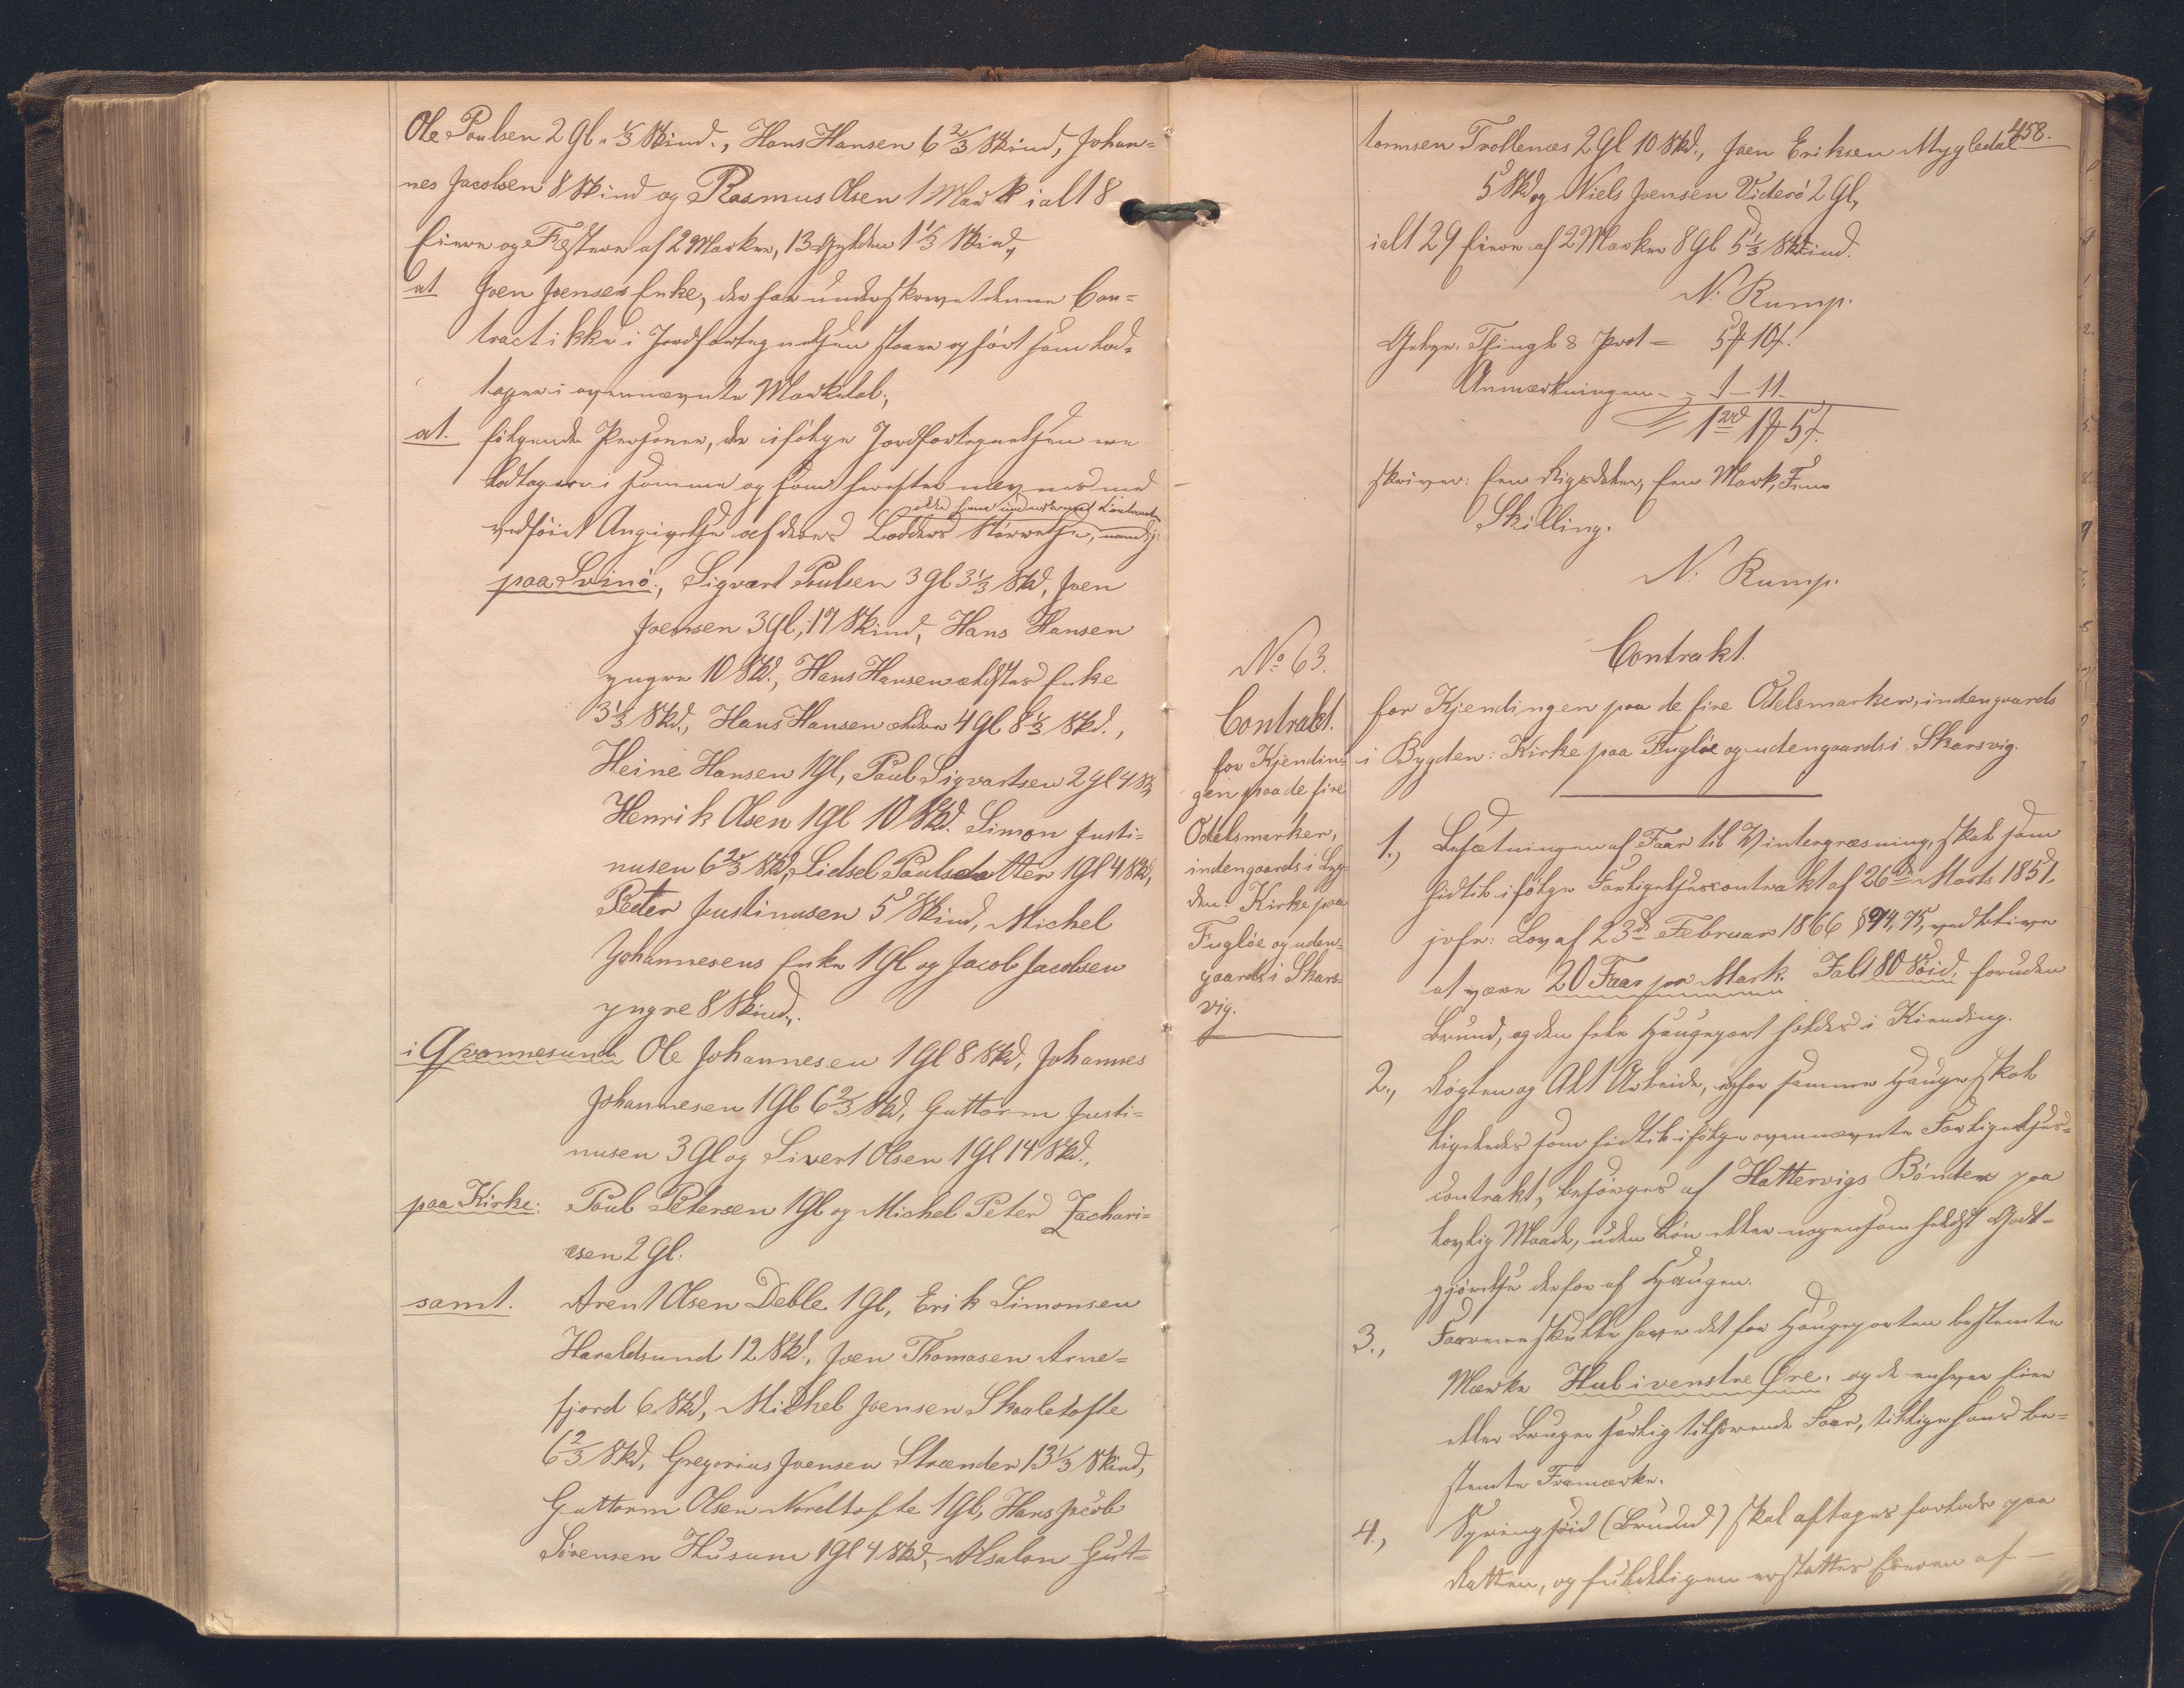 Ole Poulsen 2 Gl. 1/3 Skind., Hans Hansen 6 2/3 Skind, Johan=
nes Jacobsen 8 Skind og Rasmus Olsen 1 Mark ialt 8
Eiere og Fæstere af 2 Marker, 13 Gylden 1 1/3 Skind,
at Joen Joensens Enke, der har underskrevet denne Con=
tract ikke i Jordfortegnelsen staaer opført som Lod=
tager i ovennævnte Markelab,
at. følgende Personer, der ifølge Jordfortegnelsen ere
Lodtagere i samme og som herefter nævnes med
ikke have underskrevet Contracten
vedføiet Angivelse af deres Lodders Størrelse, nemlig:
paa Svinö., Sigvart Poulsen 3 Gl 3 1/3 Skd, Joen
Joensen 3 Gl, 17 Skind, Hans Hansen
yngre 10 Skd., Hans Hansen ældstes Enke
3 1/3 Skd., Hans Hansen ældre 4 Gl 8 1/3 Skd.,
Heine Hansen 1 Gl, Poul Sigvartsen 2 Gl 4 Sk,
Henrik Olsen 1 Gl 10 Skd. Simon Justi=
nusen 6 2/3 Skd, Lidsel Poulsdatter 1 Gl 4 Skd,
Peter Justinusen 5 Skind, Michel
Johannesens Enke 1 Gl og Jacob Jacobsen
yngre 8 Skind,.
i Qvannesund Ole Johannesen 1 Gl 8 Skd, Johannes
Johannesen 1 Gl 6 2/3 Skd, Guttorm Justi=
nusen 3 Gl og Sivert Olsen 1 Gl 14 Skd.,
paa Kirke: Poul Petersen 1 Gl og Michel Peter Zachari=
asen 2 Gl.
samt. Arent Olsen Deble 1 Gl, Erik Simonsen
Haraldsund 12 Skd., Joen Thomasen Arne=
fjord 6 Skd, Michel Joensen Skaaletofte
6 2/3 Skd, Gregorius Joensen Strænder 13 1/3 Skind,
Guttorm Olsen Nordtofte 1 Gl, Hans Jacob
Sörensen Husum 1 Gl 4 Skd, Absalon Gut=
458.
tormsen Trollenæs 2 Gl 10 Skd., Joen Eriksen Mygledal
5 Skd og Niels Joensen Viderö 2 Gl,
ialt 29 Eiere af 2 Marker 8 Gl 5 1/3 Skind.
N. Rump.
Gebyr. Thingl & Prot = 5 ₰ 10 ß.
Anmærkningen - = 1 - 11.
= 1 rd 1 ₰ 5 ß.
skriver: Een Rigsdaler, Een Mark, Fem
Skilling.
N. Rump.
No 63.
Contrakt.
for Kjendin=
gen paa de fire
Odelsmarker,
indengaards i Byg=
den: Kirke paa
Fugløe og uden=
gaards i Skars=
vig.
Contrakt.
for Kjendingen paa de fire Odelsmarker, indengaards
i Bygden: Kirke paa Fugløe og udengaards i Skarsvig.
1., Besætningen af Faar til Vintergræsning, skal som
hidtil ifølge Foreligelsescontrakt af 26de Marts 1851,
jvfr: Lov af 23de Februar 1866 § 4, 5, vedblive
at være 20 Faar pr Mark. Ialt 80 Söid, foruden
Brund, og den hele Haugepart holdes i Kiending.
2., Røgten og Alt Arbeide, for samme Hauge skal
ligeledes som hidtil ifølge ovennævnte Forligelses=
contrakt, besørges af Hattervigs Bönder paa
lovlig Maade, uden Løn eller nogensomhelst Godt=
gjørelse derfor af Haugen.
3., Faarene skulle have det for Haugeparten bestemte
Mærke Hul i venstre Øre. og de enhver Eier
eller Bruger særlig tilhørende Faar, tillige hans be=
stemte Framærke.
4., Springsøid (Brund) skal aftages forlods paa
Retten, og fuldeligen erstattes Eieren af -